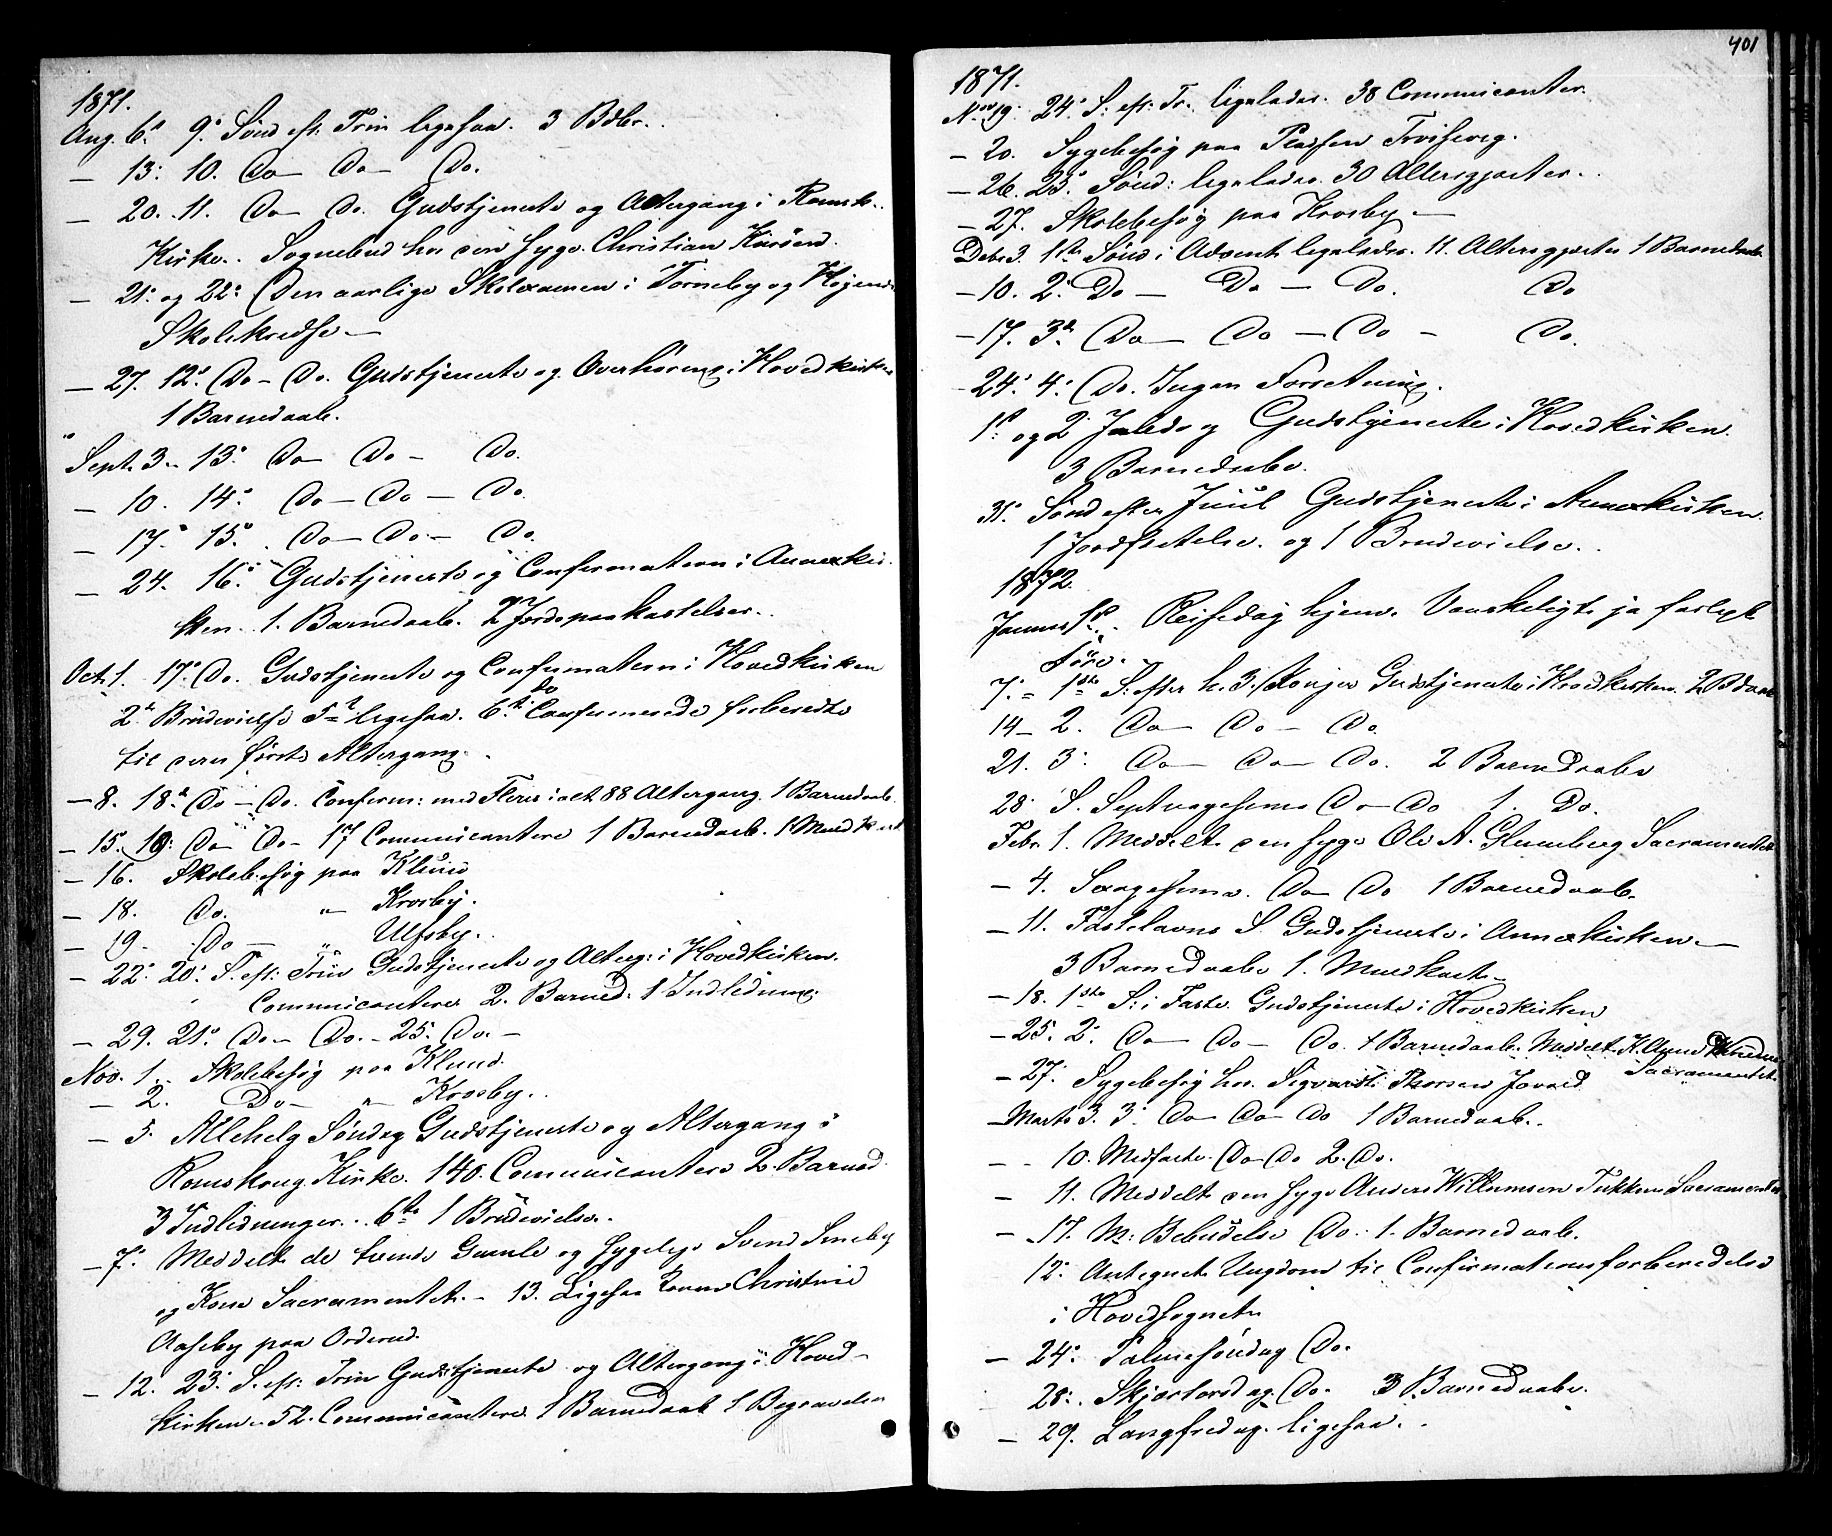 1871.
Aug. 6. 9. Sønd eft. Trin ligesaa. 3 Bdbr.
— 13. 10. Do — Do — Do.
— 20. 11. Do — Do. Gudstjeneste og Altergang i Romsk.
Kirke. Sognebud hos den syge Christian
— 21. og 22. Den aarlige Skolexamen i Torneby og
Skolekredse —
— 27. 12. Do — Do. Gudstjeneste og Overhøring i Hovedkirken
1 Barnedaab.
Sept. 3. 13. Do — Do — Do.
— 10. 14. Do — Do — Do.
— 17. 15. Do — Do — Do.
— 24. 16. Gudstjeneste og Confirmation i Annexkir-
ken. 1. Barnedaab. 2 Jordpaakastelser.
Oct. 1. 17. Do. Gudstjeneste og Confirmation i Hovedkirken
2. Brudevielse ligesaa. 6. do Confirmerede forberedte
til deres første Altergang.
— 8. 18. Do — Do. Conferm: med Flere i alt 88 Altergang. 1 Barnedaab.
— 15. 19. Do — Do — 17 Communicantere 1 Barnedaab.
— 16. Skolebesøg paa Klund
— 18. Do. " Krosby.
— 19. Do — " Ulfsby.
— 22. 20. S. eft. Trin Gudstjeneste og Alterg: i Hovedkirken.
Communicantere 2. Barned. 1 Indledning.
— 29. 21. Do — Do. — 25. Do. —
Nov. 1. Skolebesøg paa Klund.
— 2. Do — " Krosby.
— 5. Allehelg Søndag Gudstjeneste og Altergang i
Romskoug Kirke. 140. Communicantere 2. Barned.
3 Indledninger. 1 Brudevielse.
— 7. Meddelt de tvende Gamle og sygelige Svend
og Kone Sacramentet. — 13. Ligesaa Christine
Aaseby paa Orderud.
— 12. 23. S. eft: Trin Gudstjeneste og Altergang i Hoved-
kirken. 52. Communicantere 1 Barnedaab 1 Begravelse
401
1871.
Nov. 19. 24. S. eft: Tr. ligeledes. 38 Communicanter.
— 20. Sygebesøg paa Pladsen
— 26. 25. Sønd: ligeledes. 30 Altersgjæster.
— 27. Skolebesøg paa Krosby —
Debr 3. 1ste Sønd i Advent ligeledes. 11. Altersgjæster 1 Barnedaab
— 10. 2. Do — Do — Do. Do
— 17. 3. Do — Do — Do — Do.
24. 4. Do. Ingen Forretning.
1. og 2 Juledag Gudstjeneste i Hovedkirken.
3 Barnedaabe.
31. Sønd efter Juul Gudstjeneste i Annexkirken.
1 Jordfæstelse. og 1 Brudevielse.
1872.
Januar 1. Reisedag hjem. Vanskeligt ja farligt
Føre.
7. 1ste S. efter h. 3. Konger Gudstjeneste i Hovedkirken. 2 Bdaab
14 — 2. Do — Do — Do.
21. 3. Do — Do — Do. 2 Barnedaabe
28. S. Septuagesima Do — Do 1. Do.
Febr. 1. Meddelt den syge Ole A. Sacramentet
— 4. Sexagesima. Do — Do 1 Barnedaab.
— 11. Fastelavns S. Gudstjeneste i Annexkirken. —
3 Barnedaabe 1.
— 18. 1ste S: i Faste. Gudstjeneste i Hovedkirken
— 25. 2. Do — Do — Do. 1 Barnedaab. Meddelt K.
Sacramentet.
— 27. Sygebesøg hos Thorsen
— Marts 3. 3. Do — Do — Do 1 Barnedaab.
— 10. Midfaste. Do — Do 2. Do.
— 11. Meddelt den syge Anders Willumsen Sacramentet
— 17. M: Bebudelse Do. 1. Barnedaab.
12. Antegnet Ungdom til Confirmationsforberedelse
i Hovedsognet
— 24. Palmesøndag Do.
28. Skjærtorsdag. Do. 3 Barnedaabe.
— 29. Langfredag. ligesaa.